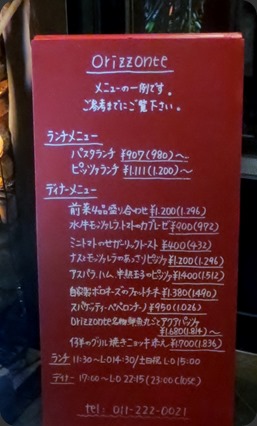 Orizzonte
メニューの一例です。
ご参考までにご覧下さい。
ランチメニュー
パスタランチ ¥907(980)〜
ピッツァランチ ¥1.111(1.200)〜
ディナーメニュー
前菜4品盛り合わせ ¥1.200(1.296)
水牛モッツァレラ、トマトのカプレーゼ ¥900(972)
ミニトマトのせガーリックトースト ¥400(432)
ナスとモッツァレラのあっさりピッツァ ¥1.200(1.296)
アスパラ、ハム、半熟玉子のピッツァ ¥1400(1.512)
自家製ボロネーズのフェットチーネ ¥1.380(1490)
スパゲッティ・ペペロンチーノ ¥950(1.026)
Orizzonte名物 鮮魚丸ごとアクアパッツァ
¥1.680(1.814)〜
仔羊のグリル 焼きニョッキ添え ¥1700(1.836)
ランチ 11:30〜L.O14:30/土日祝 L.O15:00
ディナー 17:00〜L.O 22:15(23:00close)
tel: 011-222-0021